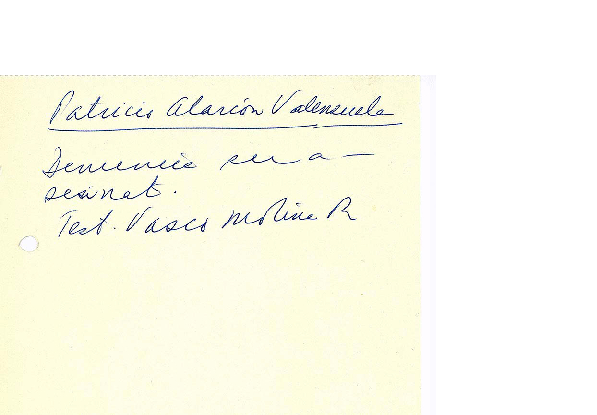 Patricio Alarcón Valenzuela
Denuncia su a -
sesinat.
Test. Vasco Molina R